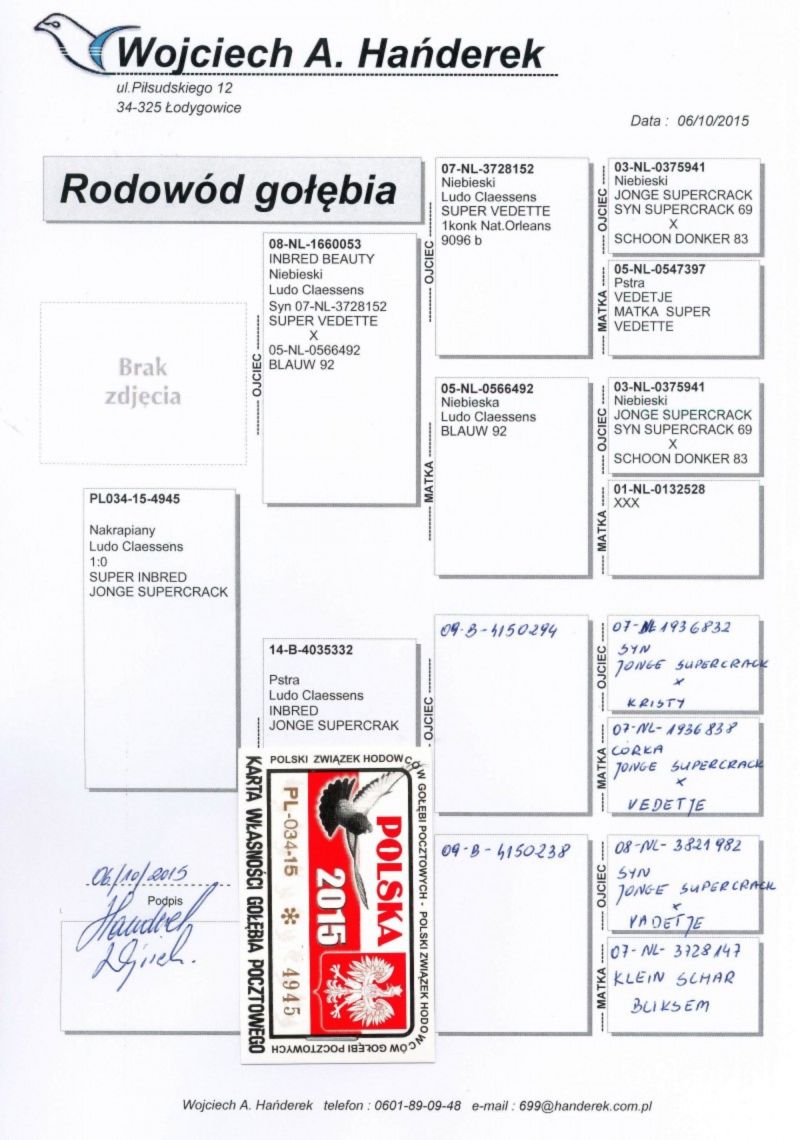 Wojciech A. Hańderek
ul.Piłsudskiego 12
34-325 Łodygowice
Data : 06/10/2015
Rodowód gołębia
Brak
zdjęcia
PL034-15-4945
Nakrapiany
Ludo Claessens
1:0
SUPER INBRED
JONGE SUPERCRACK
06/10/2015
Podpis
OJCIEC
08-NL-1660053
INBRED BEAUTY
Niebieski
Ludo Claessens
Syn 07-NL-3728152
SUPER VEDETTE
X
05-NL-0566492
BLAUW 92
14-B-4035332
Pstra
Ludo Claessens
INBRED
JONGE SUPERCRAK
OJCIEC
07-NL-3728152
Niebieski
Ludo Claessens
SUPER VEDETTE
1konk Nat.Orleans
9096 b
MATKA
05-NL-0566492
Niebieska
Ludo Claessens
BLAUW 92
OJCIEC
09-B-4150294
09-B-4150238
OJCIEC
03-NL-0375941
Niebieski
JONGE SUPERCRACK
SYN SUPERCRACK 69
X
SCHOON DONKER 83
MATKA
05-NL-0547397
Pstra
VEDETJE
MATKA SUPER
VEDETTE
OJCIEC
03-NL-0375941
Niebieski
JONGE SUPERCRACK
SYN SUPERCRACK 69
X
SCHOON DONKER 83
MATKA
01-NL-0132528
XXX
OJCIEC
07-NL 1936832
SYN
JONGE SUPERCRACK
x
KRISTY
MATKA
07-NL-1936838
CÓRKA
JONGE SUPERCRACK
x
VEDETJE
OJCIEC
08-NL-3821982
SYN
JONGE SUPERCRACK
x
VADETJE
MATKA
07-NL-3728147
KLEIN SCHAR
BLIKSEM
POLSKI ZWIĄZEK HODOWCÓW GOŁĘBI POCZTOWYCH - POLSKI ZWIĄZEK HODOWCÓW GOŁĘBI POCZTOWYCH
KARTA WŁASNOŚCI GOŁĘBIA POCZTOWEGO
PL-034-15 * 4945
POLSKA
2015
Wojciech A. Hańderek telefon : 0601-89-09-48 e-mail : 699@handerek.com.pl